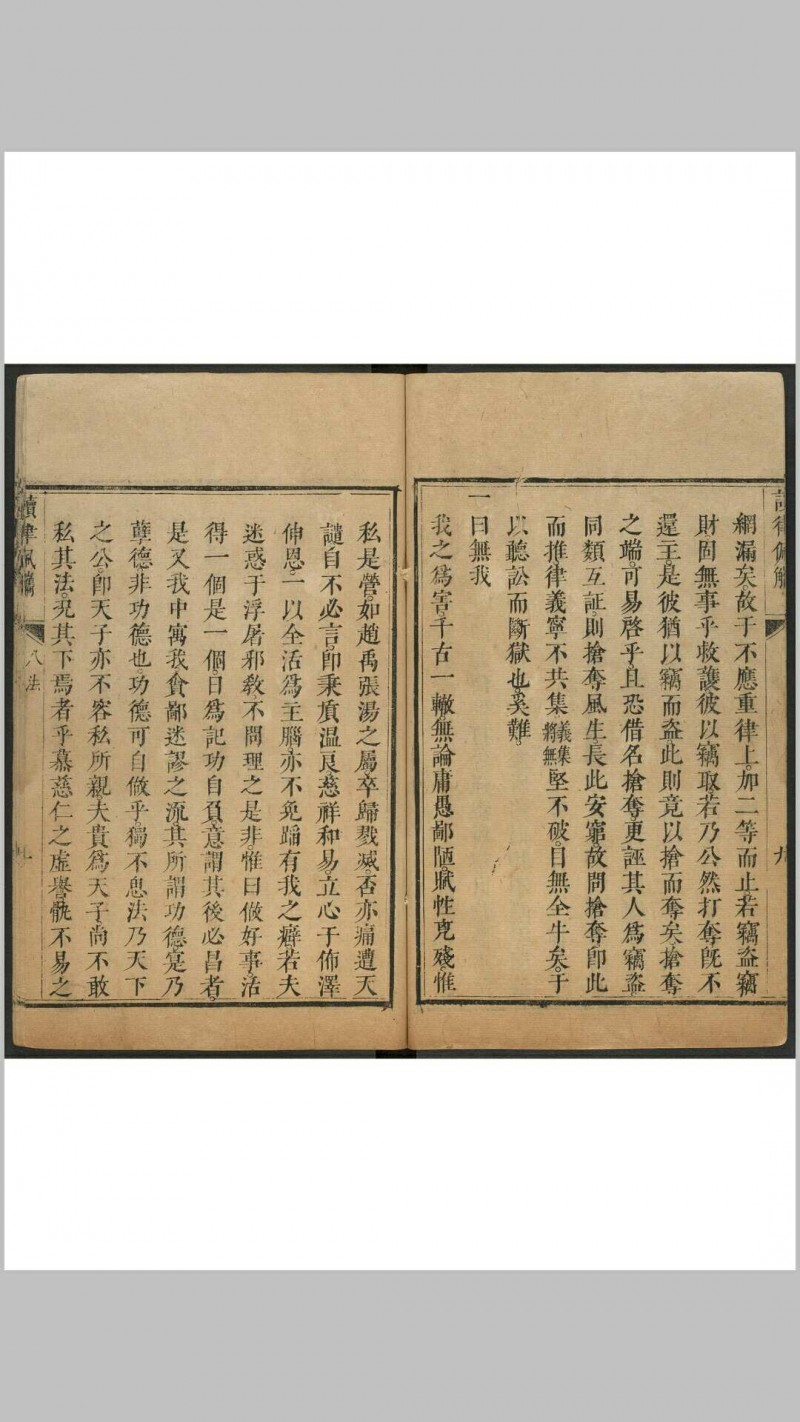 網漏矣故于不應重律上加二等而止若竊盜竊
財固無事乎救護彼以竊取若乃公然打奪旣不
還主是彼猶以竊而盜此則竟以搶而奪矣搶奪
之端可易啓乎且恐借名搶奪更誣其人爲竊盜
同類互証則搶奪風生長此安窮故問搶奪卽此
而推律義寧不共集義集將無堅不破目無全牛矣于
以聽訟而斷獄也奚難
一曰無我
我之爲害千古一轍無論庸愚鄙陋賦性克殘惟
私是營如趙禹張湯之屬卒歸戮滅否亦痛遭天
譴自不必言卽秉質温良慈祥和易立心于佈澤
伸恩一以全活爲主腦亦不免蹈有我之癖若夫
迷惑于浮屠邪敎不問理之是非惟曰做好事活
得一個是一個日爲記功自負意謂其後必昌者
是又我中寓我貪鄙迷謬之流其所謂功德寔乃
孽德非功德也功德可自做乎獨不思法乃天下
之公卽天子亦不容私所親夫貴爲天子尚不敢
私其法况其下焉者乎慕慈仁之虛譽骩不易之
讀律佩觿
八法
九